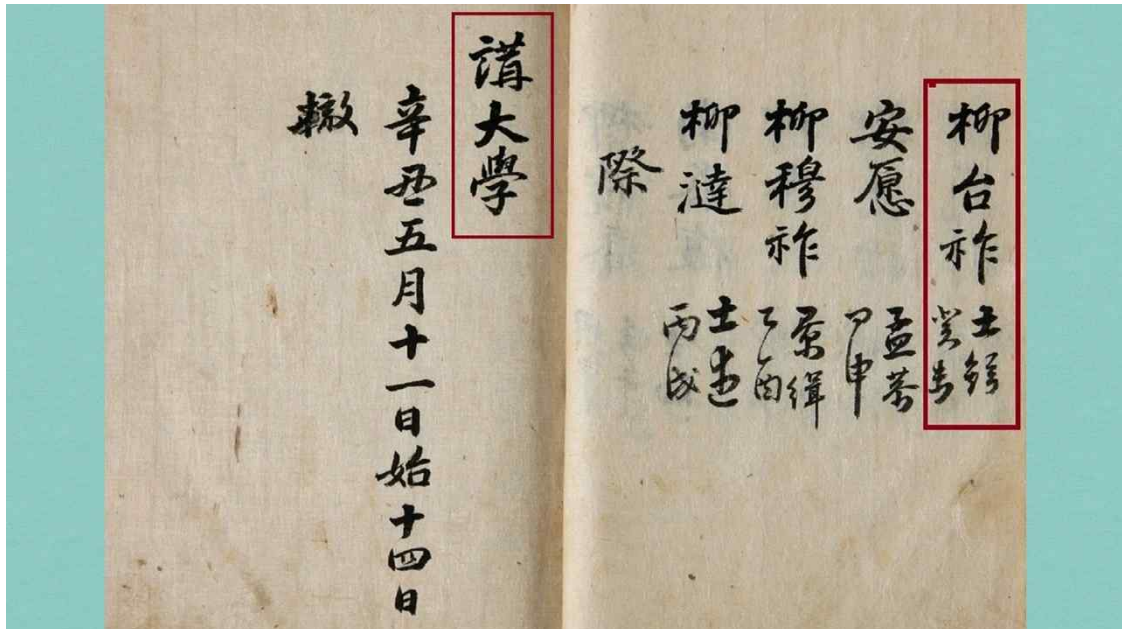 柳台祚 士鎔 癸未
安愿 孟恭 甲申
柳穆祚 景緝 乙酉
柳澾 士達 丙戌
際
講大學
辛丑五月十一日始十四日
轍